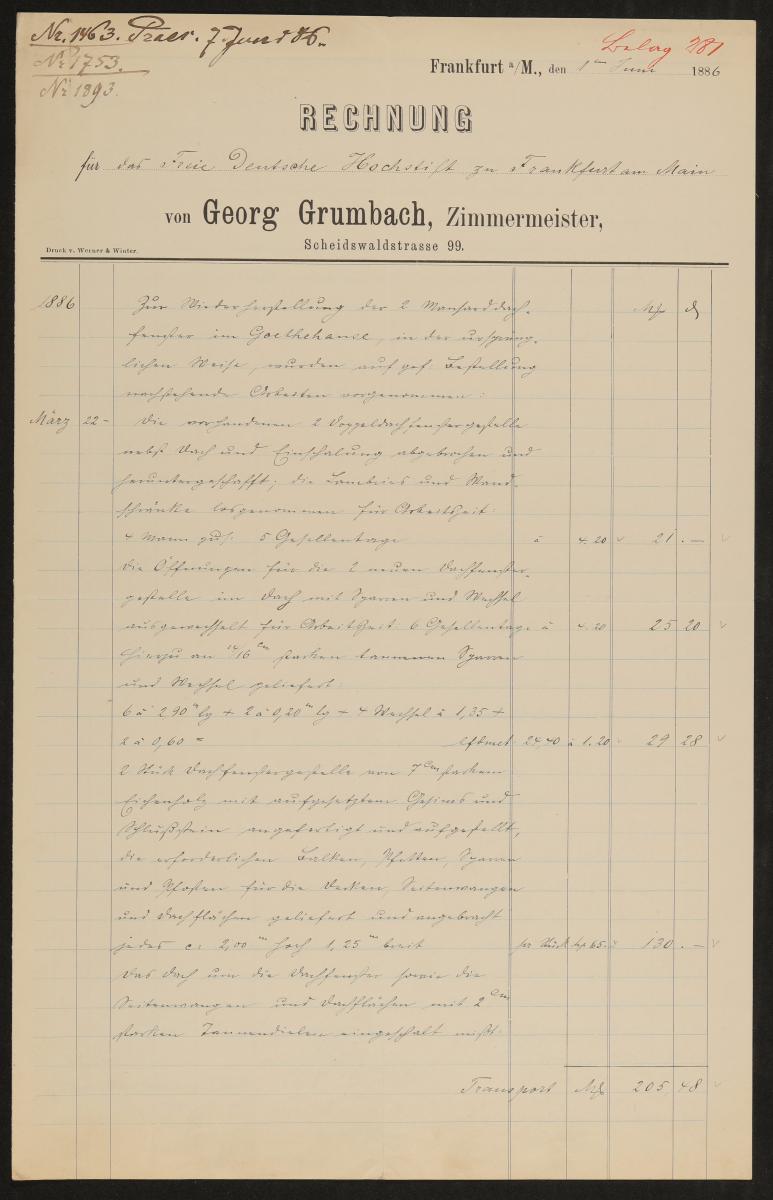 Nr. 1463. Praes. 7. Juni 86.
Nr. 1753.
Nr. 1893.
Belag 281
Frankfurt a/M., den 1ten Juni 1886
RECHNUNG
für das Freie Deutsche Hochstift zu Frankfurt am Main
von Georg Grumbach, Zimmermeister,
Scheidswaldstrasse 99.
Druck v. Werner & Winter.
1886 Zur Wiederherstellung der 2 Mansarddach- M. d
fenster im Goethehause, in der ursprüng-
lichen Weise, wurden auf gef. Bestellung
nachstehende Arbeiten vorgenommen:
März 22 - Die vorhandenen 2 Doppeldachfenstergestelle
nebst Dach und Einschalung abgebrochen und
heruntergeschafft; die Lambries und Wand-
schränke losgenommen für Arbeitszeit:
4 Mann zus. 5 Gesellentage à 4.20 21.—
Die Öffnungen für die 2 neuen Dachfenster-
gestelle im Dach mit Sparren und Wechsel
ausgewechselt für Arbeitszeit 6 Gesellentage à 4.20 25 20
Hierzu an 14/16 cm starken tannenen Sparren
und Wechsel geliefert:
6 à 2,90 m lg + 2 à 0,20 m lg + 4 Wechsel à 1,35 +
2 à 0,60 = lfdmet 24,40 à 1.20 29 28
2 Stück Dachfenstergestelle von 7 cm starkem
Eichenholz mit aufgesetztem Gesims und
Schlußstein angefertigt und aufgestellt,
die erforderlichen Balken, Pfetten, Sparren
und Pfosten für die Decken, Seitenwangen
und Dachflächen geliefert und angebracht
jedes c: 2,00 m hoch 1,25 m breit per Stück 65.- 130.—
Das Dach um die Dachfenster sowie die
Seitenwangen und Dachflächen mit 2 cm
starken Tannendielen eingeschalt mißt:
Transport M. 205 48